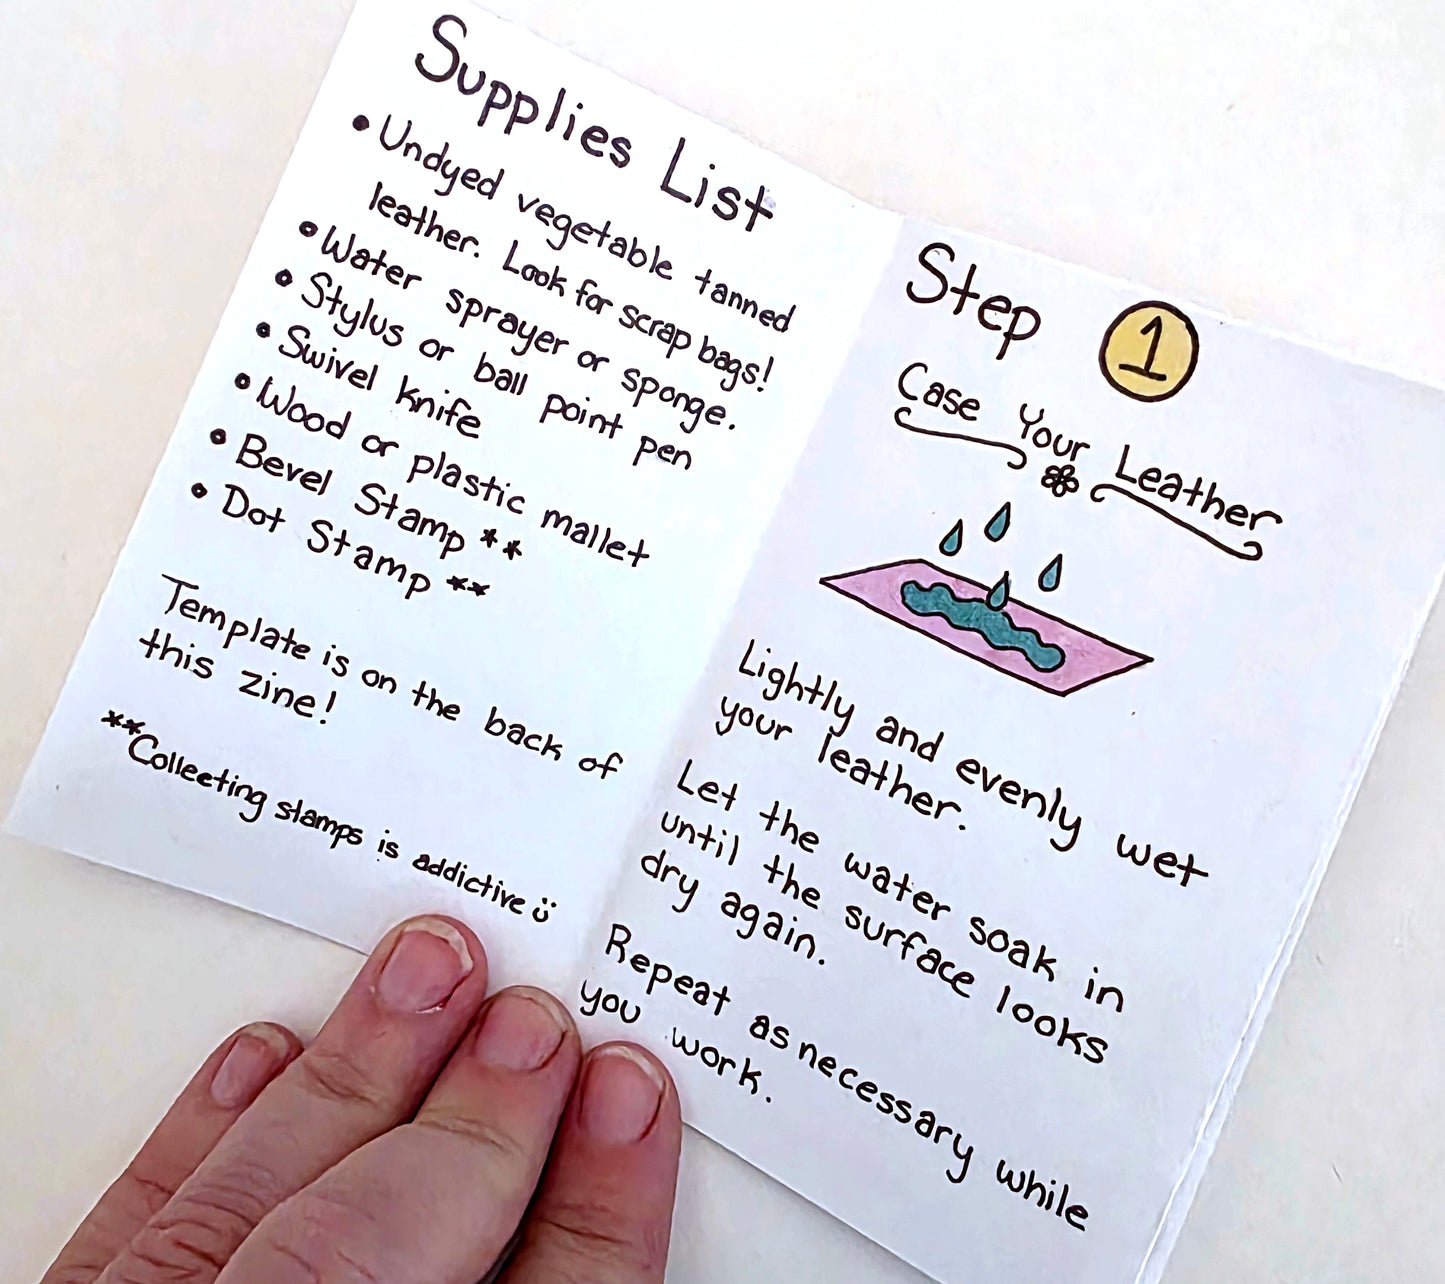 Supplies List
• Undyed vegetable tanned
leather. Look for scrap bags!
• Water sprayer or sponge.
• Stylus or ball point pen
• Swivel knife
• Wood or plastic mallet
• Bevel Stamp **
• Dot Stamp **
Template is on the back of
this zine!
**Collecting stamps is addictive ü
Step 1
Case Your Leather
Lightly and evenly wet
your leather.
Let the water soak in
until the surface looks
dry again.
Repeat as necessary while
you work.